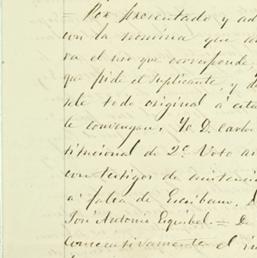 = Por presentado y ad
con la nomina que
va el uso que corresponde,
que pide el suplicante, y d
sele todo original a esta
le convengan, Yo D. Carlos
titucional de 2º Voto a
con testigos de asistencia
a falta de Escribano, D.
José Antonio Esquibel. = D.
Consecutivamente el in